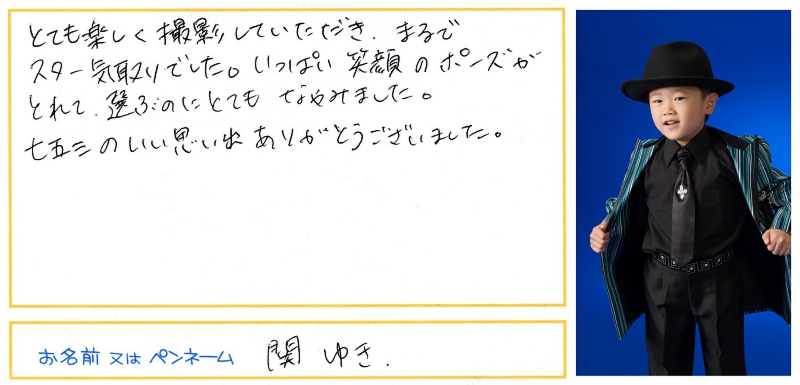 とても楽しく撮影していただき、まるで
スター気取りでした。いっぱい笑顔のポーズが
とれて、選ぶのにとてもなやみました。
七五三のいい思い出ありがとうございました。
お名前又はペンネーム 関 ゆき.